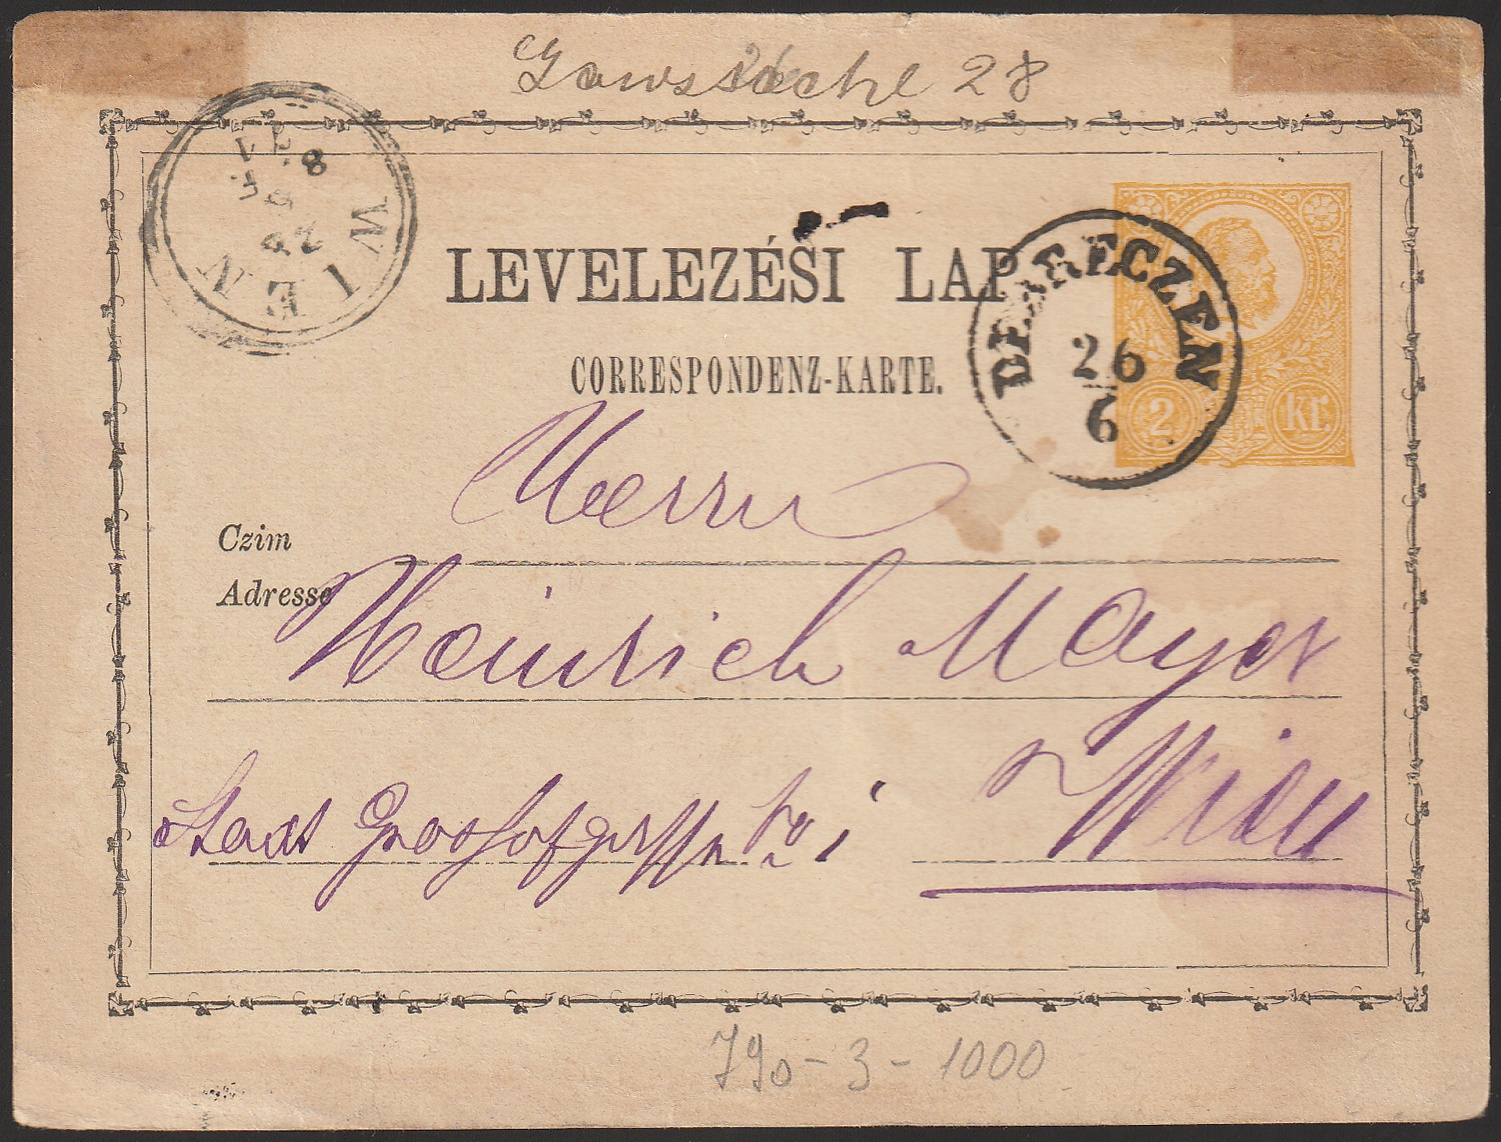 28
LEVELEZÉSI LAP
CORRESPONDENZ-KARTE.
DEBRECZEN
26
6
2 kr.
WIEN
8
Herrn
Czim
Adresse
Heinrich Mayer
Stadt
Wien
790-3-1000